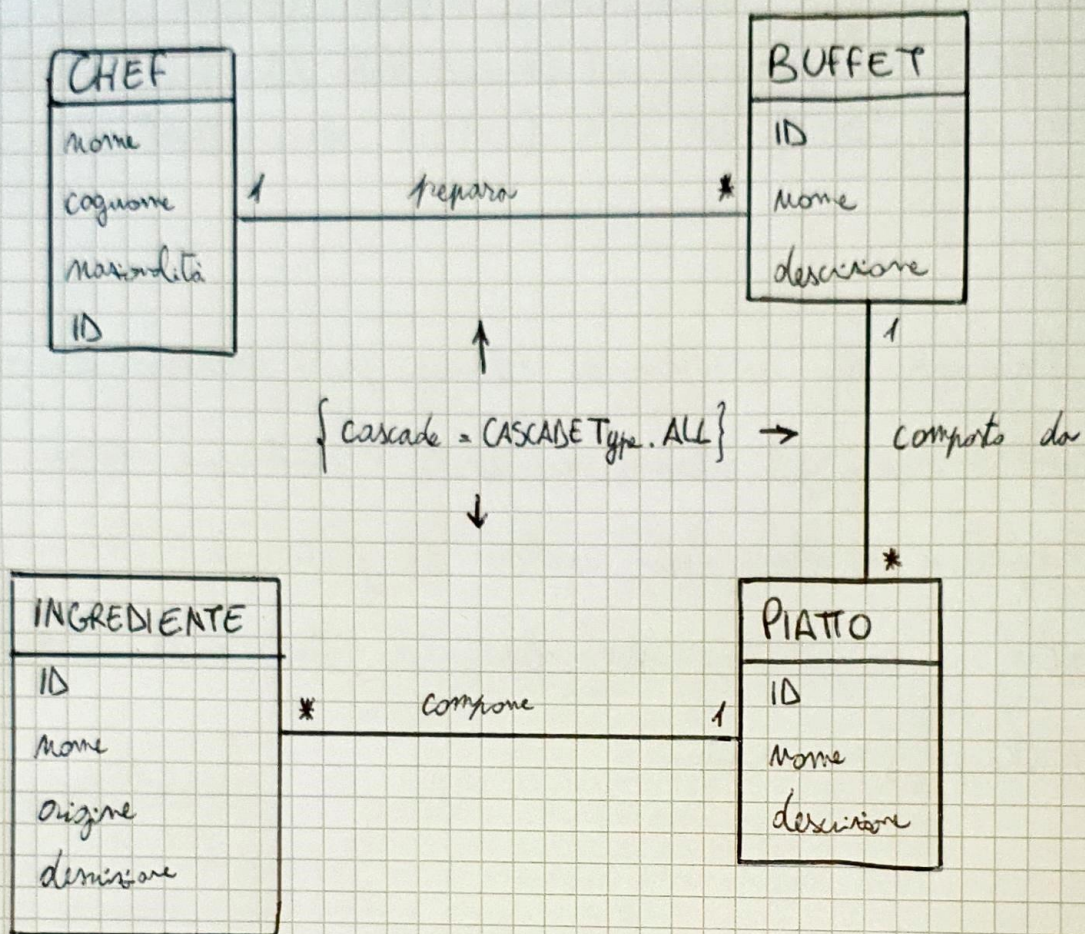 CHEF
nome
cognome
nazionalità
ID
1 prepara *
BUFFET
ID
nome
descrizione
1
composto da
*
{ cascade = CASCADE Type.ALL } →
↑
↓
INGREDIENTE
ID
nome
origine
descrizione
* compone 1
PIATTO
ID
nome
descrizione